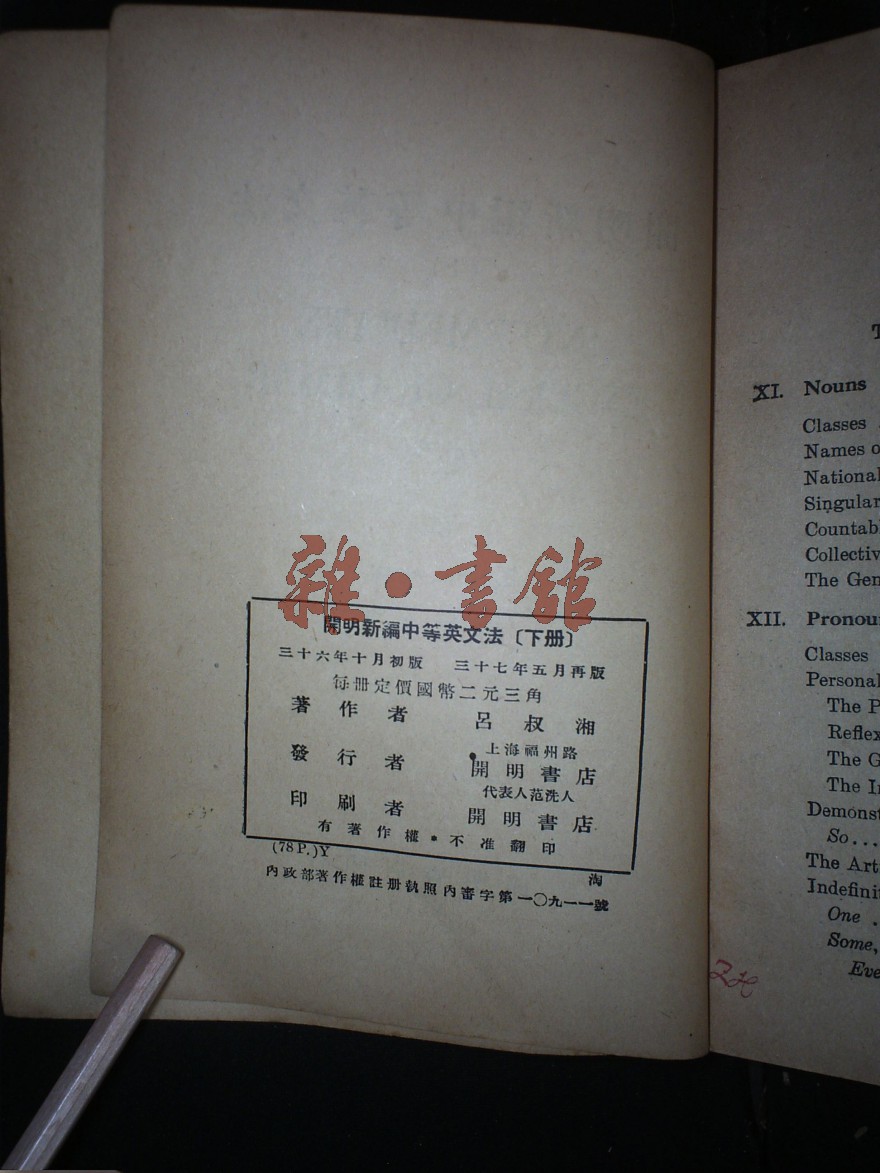 雜·書館
開明新編中等英文法〔下册〕
三十六年十月初版 三十七年五月再版
每册定價國幣二元三角
著作者 呂叔湘
上海福州路
發行者 開明書店
代表人范洗人
印刷者 開明書店
有著作權·不准翻印
(78P.)Y 淘
內政部著作權註册執照內審字第一〇九一一號
XI. Nouns
Classes
Names
National
Singular
Countabl
Collectiv
The Gen
XII. Pronou
Classes
Personal
The P
Reflex
The G
The I
Demonst
So...
The Art
Indefini
One .
Some,
Eve